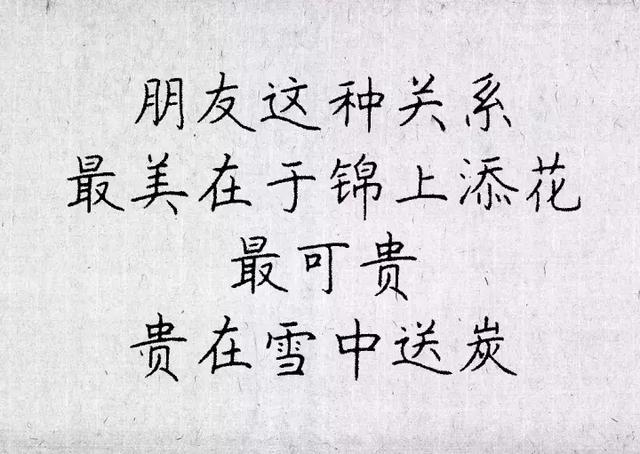 朋友这种关系
最美在于锦上添花
最可贵
贵在雪中送炭